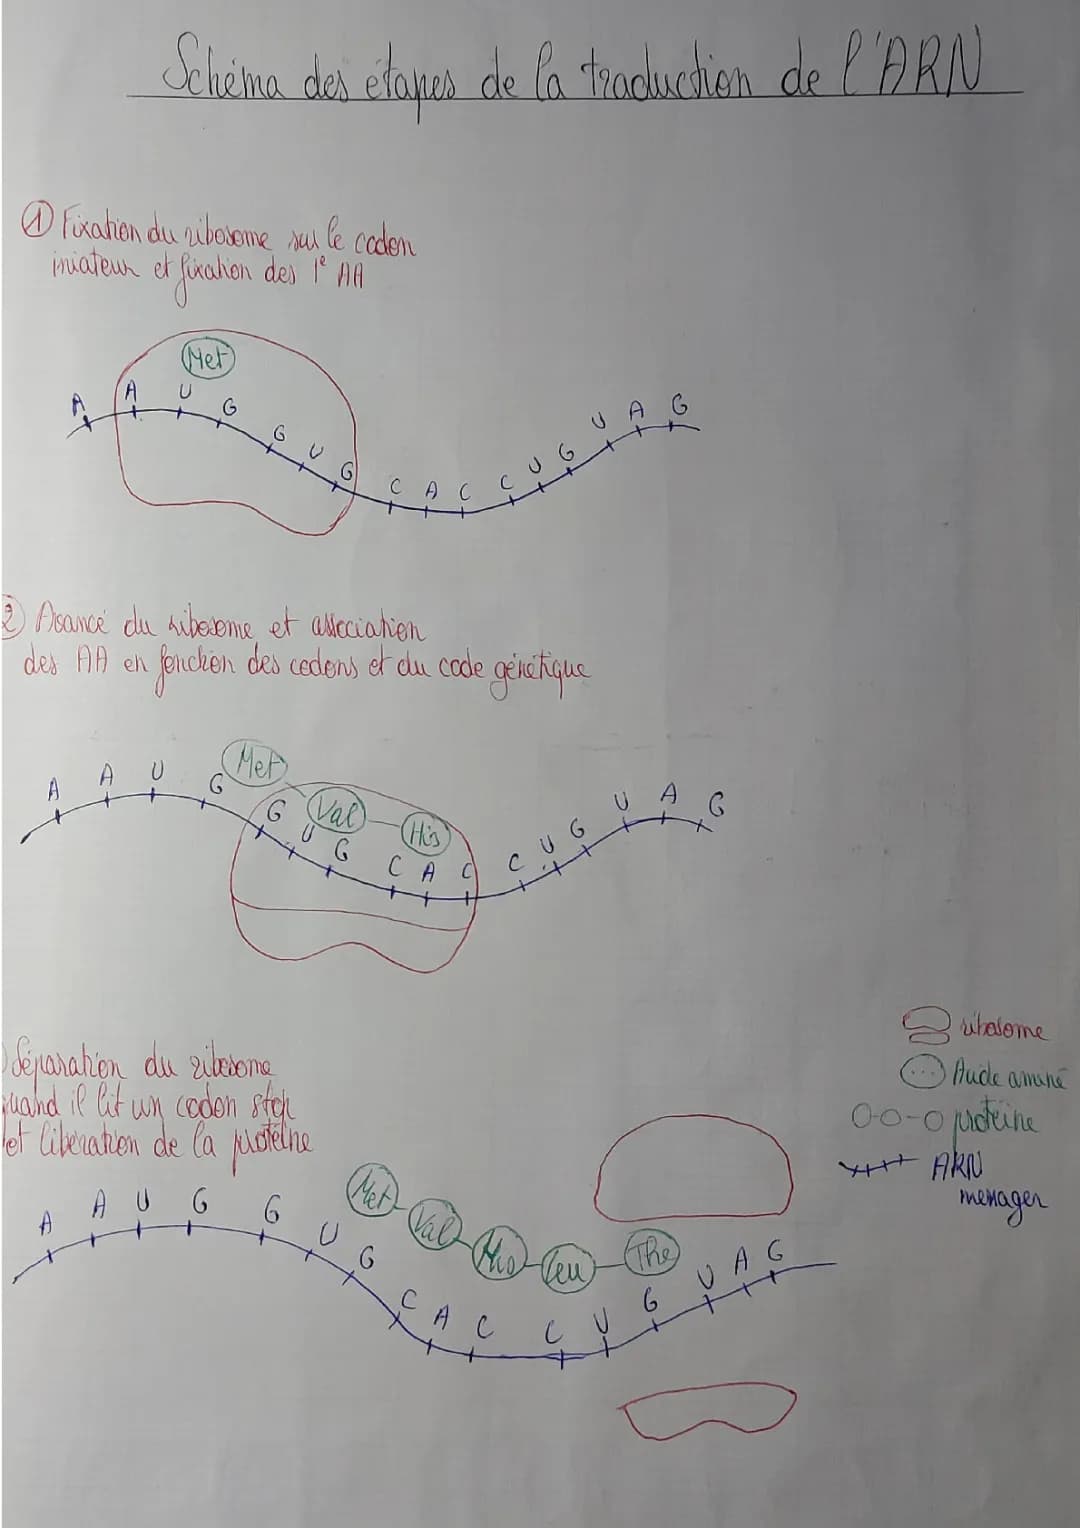 Schéma des étapes de la traduction de l'ARN
① Fixation du ribosome sur le codon
iniateur et fixation des 1° AA
Met
A A U G G U G C A C C U G U A G
2 Avancé du ribosome et association
des AA en fonction des codons et du code génétique
Met Val His
A A U G G U G C A C C U G U A G
ribosome
Acide aminé
protéine
ARN
messager
Séparation du ribosome
quand il lit un codon stop
et libération de la protéine
Met Val His Leu The
A A U G G U G C A C C U G U A G